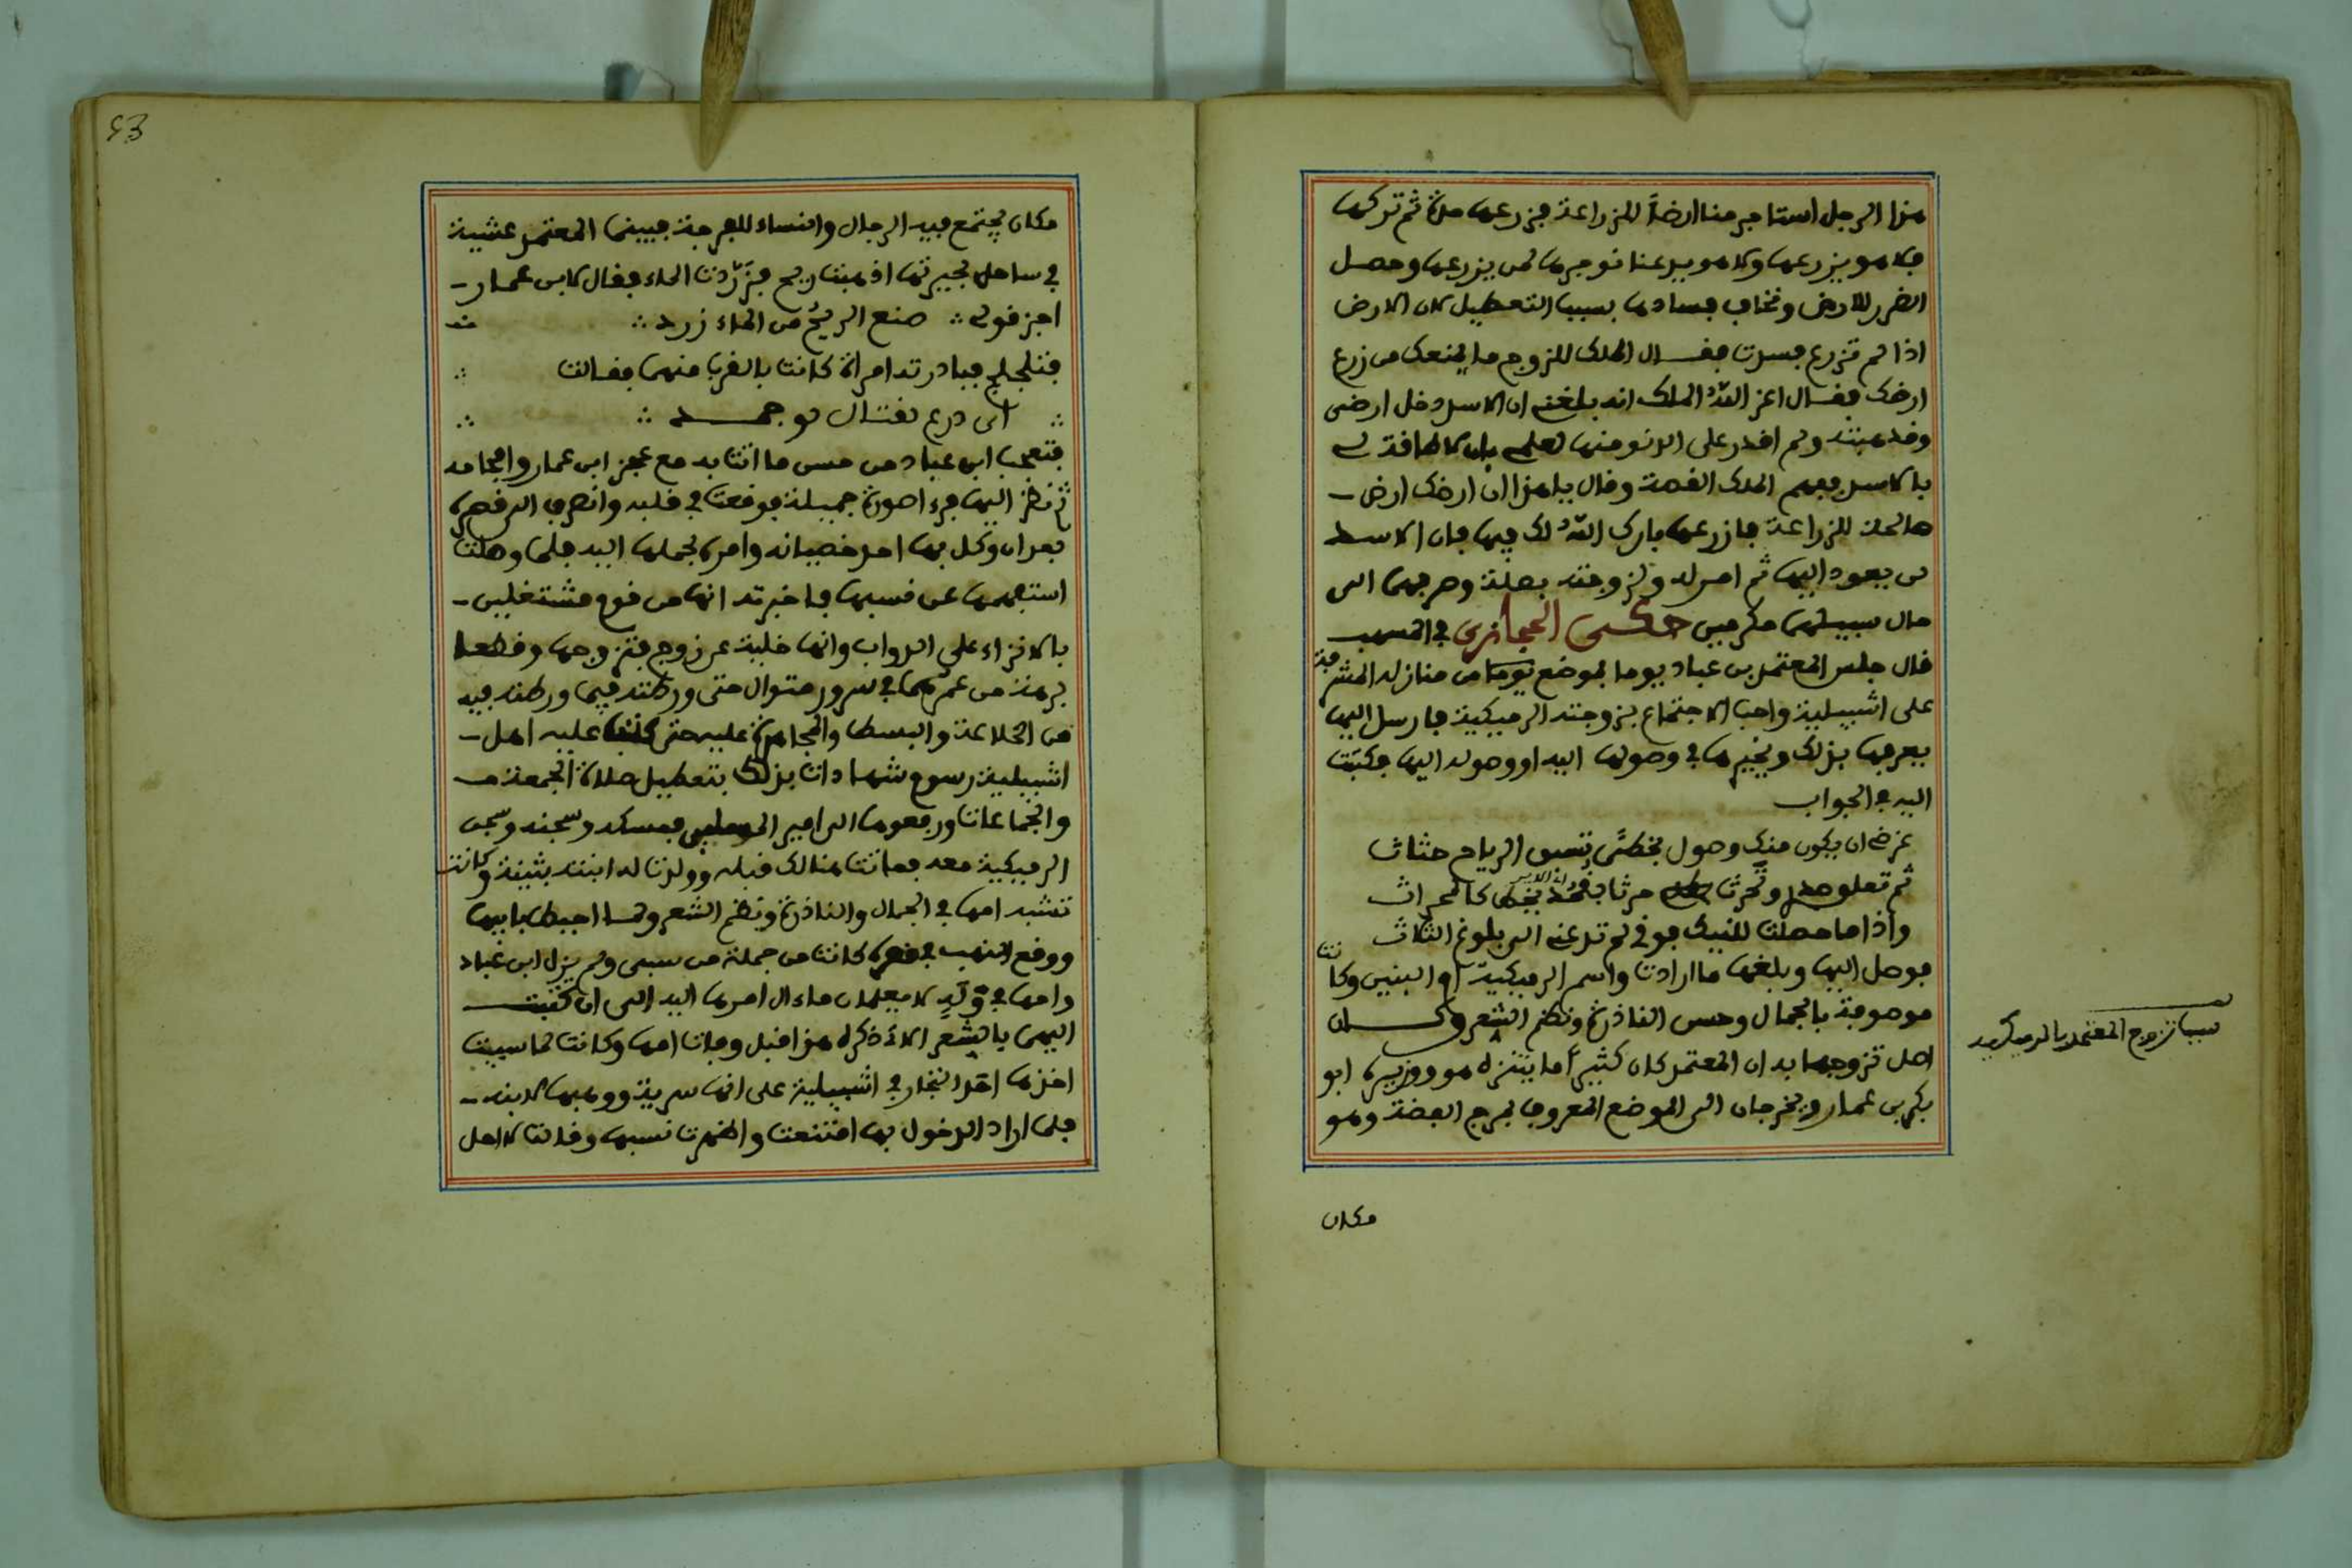 هذا الرجل استاجر منا ارضاً للزراعة فزرعها مدة ثم تركها
فلا هو يزرعها ولا هو يدعنا نوجرها لمن يزرعها وحصل
الضرر للارض ونخاف فسادها بسبب التعطيل لان الارض
اذا لم تزرع فسدت فقال الملك للزوج ما يمنعك من زرع
ارضك فقال اعز الله الملك انه بلغني ان الاسد دخل ارضي
وقد هبته ولم اقدر على الدنو منها لعلمي بان لا طاقة لي
بالاسد ففهم الملك القصة وقال يا هذا ان ارضك ارض
صالحة للزراعة فازرعها بارك الله لك فيها فان الاسد
لن يعود اليها ثم امر له ولزوجته بصلة وصرفهما الى
حال سبيلهما مكرمين حكى الحجازي في المسهب
قال جلس المعتمد بن عباد يوما بموضع من منازله المشرفة
على اشبيلية واحب الاجتماع بزوجته الرميكية فارسل اليها
يعرفها بذلك ويخيرها في وصولها اليه او وصوله اليها فكتبت
اليه في الجواب
غرضي ان يكون منك وصول تسبق الرياح حثاث
ثم تعلو وتحرث حرثا كالمحراث
واذا ما حصلت للنيك فوقي لم تدعني الى بلوغ الثلاث
فوصل اليها وبلغها ما ارادت واسم الرميكية ام البنين وكانت
موصوفة بالجمال وحسن النادرة ونظم الشعر وكان
اصل تزوجها به ان المعتمد كان كثيراً ما يتنزه هو ووزيره ابو
بكر بن عمار ويخرجان الى الموضع المعروف بمرج الفضة وهو
سبب تزوج المعتمد بالرميكية
مكان
مكان يجتمع فيه الرجال والنساء للفرجة فبينما المعتمد عشية
في ساحل بحيرتها اذ هبت ريح فزردت الماء فقال لابن عمار
اجز قولي صنع الريح من الماء زرد
فتلجلج فبادرته امراة كانت بالقرب منهما فقالت
اي درع لقتال لو جمد
فتعجب ابن عباد من حسن ما اتت به مع عجز ابن عمار وافحامه
ثم نظر اليها فرءا صورة جميلة فوقعت في قلبه وانصرف الى قصره
بعد ان وكل بها احد خصيانه وامره بحملها اليه فلما وصلت
استفهمها عن نسبها فاخبرته انها من قوم مشتغلين
بالاكراء على الدواب وانها خلية عن زوج فتزوجها وقطعا
برهة من عمرهما في سرور متوال حتى ورطته فيما ورطته فيه
من الخلاعة والبسط والمجاهرة عليه حتى كتب عليه اهل
اشبيلية رسوم شهادات بذلك بتعطيل صلاة الجمعة
والجماعات ورفعوها الى امير المسلمين فمسكه وسجنه وسجن
الرميكية معه فماتت هنالك قبله وولدت له ابنته بثينة وكانت
تشبه امها في الجمال والنادرة ونظم الشعر ولما احيط بابيها
ووقع النهب في قصره كانت من جملة من سبي ولم يزل ابن عباد
وامها في وله لا يعلمان ماءال امرها اليه الى ان كتبت
اليهما بالشعر الاتي ذكره هذا قبل وفات امها وكانت لما سبيت
اخذها احد التجار في اشبيلية على انها سرية ووهبها لابنه
فلما اراد الدخول بها امتنعت واظهرت نسبها وقالت لا احل